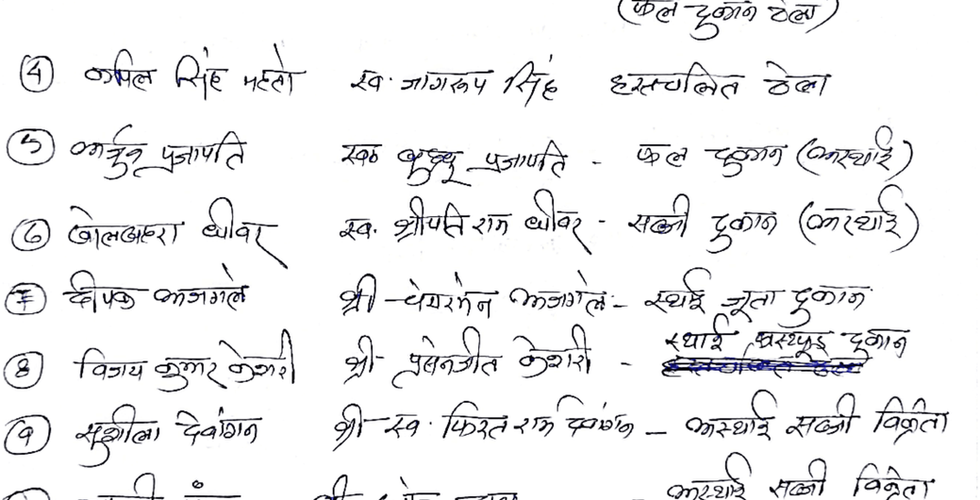 (फल दुकान ठेला)
④ कपिल सिंह महतो स्व. जागरूप सिंह हस्तचलित ठेला
⑤ अर्जुन प्रजापति स्व० बुध्धू प्रजापति - फल दुकान (अस्थाई)
⑥ धीवर स्व. श्रीपति राम धीवर - सब्जी दुकान (अस्थाई)
⑦ दीपक अजगले श्री चेयरमेन अजगले - स्थाई जूता दुकान
⑧ विजय कुमार केशरी श्री प्रसेनजीत केशरी - स्थाई दुकान
⑨ सुशीला देवांगन श्री स्व. फिरत राम देवांगन - अस्थाई सब्जी विक्रेता
अस्थाई सब्जी विक्रेता